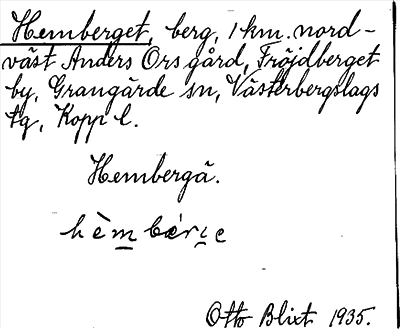 Hemberget, berg, 1 km. nord-
väst Anders Ors gård, Fröjdberget
by, Grangärde sn, Västerbergslags
tg, Kopp l.
Hembergä.
Otto Blixt 1935.